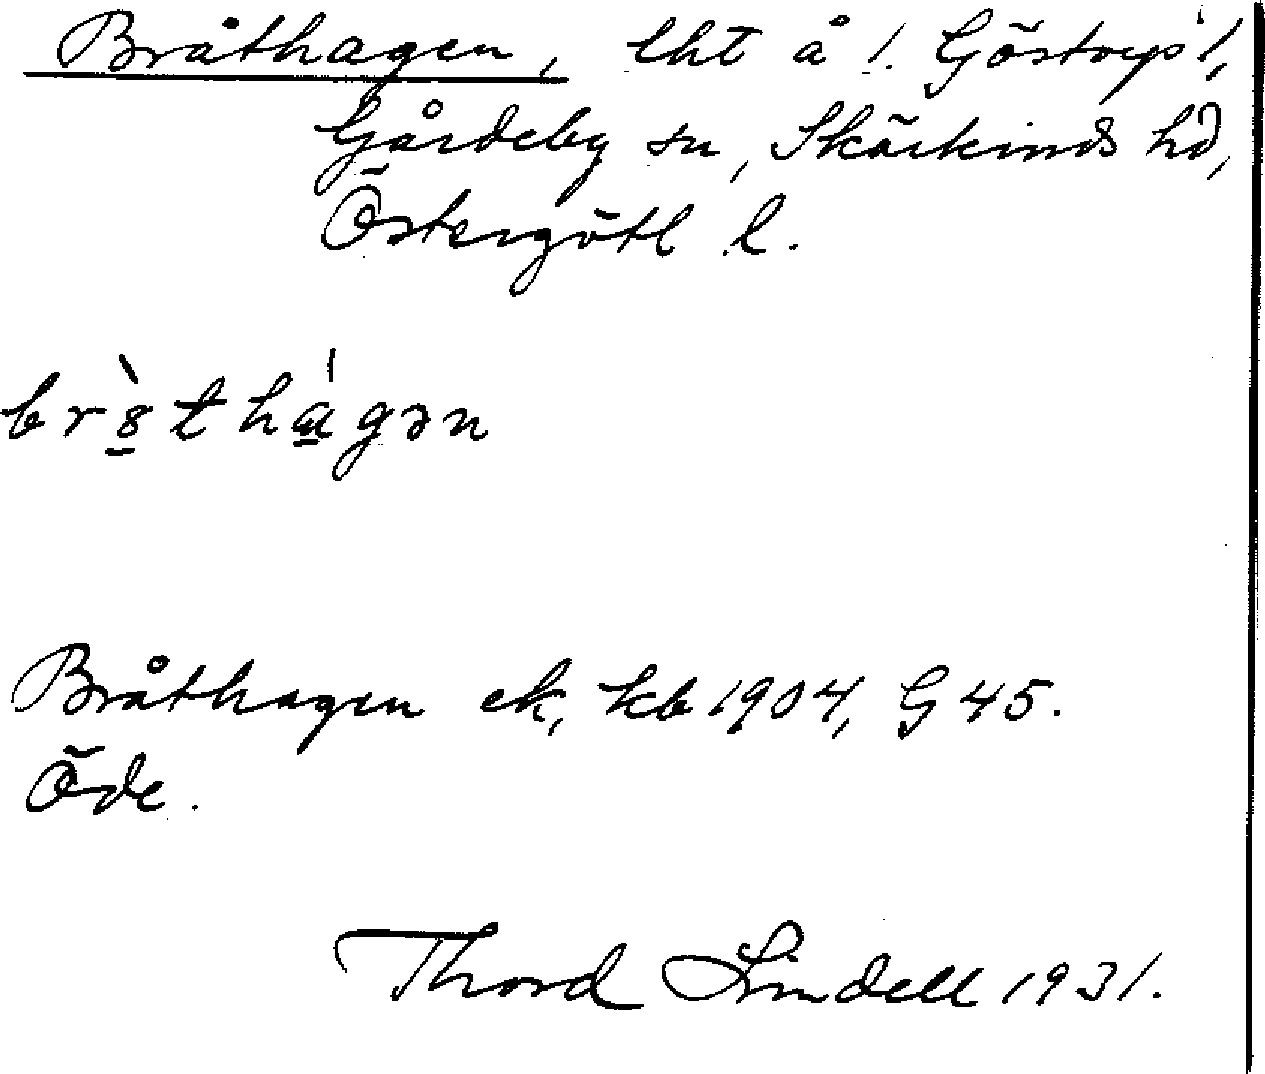 Bråthagen, lht å 1. Göstorp 1,
Gårdeby sn, Skärkinds hd,
Östergötl l.
br8̲̀thá̲gən
Bråthagen ek, kb 1904, G 45.
Öde.
Thord Lindell 1931.